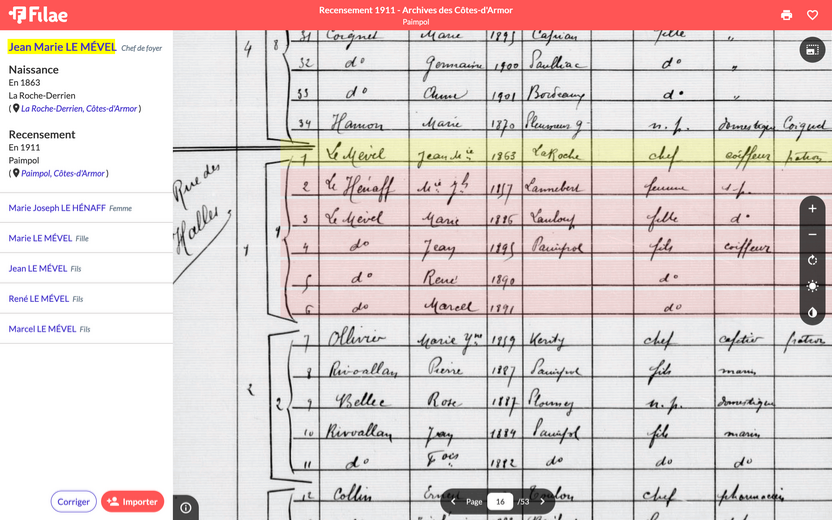 Filae
Recensement 1911 - Archives des Côtes-d'Armor
Paimpol
Jean Marie LE MÉVEL Chef de foyer
Naissance
En 1863
La Roche-Derrien
( La Roche-Derrien, Côtes-d'Armor )
Recensement
En 1911
Paimpol
( Paimpol, Côtes-d'Armor )
Marie Joseph LE HÉNAFF Femme
Marie LE MÉVEL Fille
Jean LE MÉVEL Fils
René LE MÉVEL Fils
Marcel LE MÉVEL Fils
Corriger
Importer
4 8 31 Coignet Marie 1895 fille "
32 do Germaine 1900 Pauillac do "
33 do Anne 1901 Bordeaux do "
34 Hamon Marie 1870 n. p. domestique Coignet
Rue des
Halles
1 1
1 Le Mével Jean Mie 1863 LaRoche chef coiffeur patron
2 Le Hénaff Mie Jh 1857 Lannebert femme s.p.
3 Le Mével Marie 1886 fille do
4 do Jean 1895 Paimpol fils coiffeur
5 do René 1890 do
6 do Marcel 1891 do
2 2
7 Ollivier Marie Yne 1859 Kerity chef cafetier patron
8 Rivoallan Pierre 1887 Paimpol fils marin
9 Bellec Rose 1887 n. p. domestique
10 Rivoallan Jean 1884 Paimpol fils marin
11 do Fois 1882 do do do
12 Collin Toulon chef pharmacien
Page 16 /53